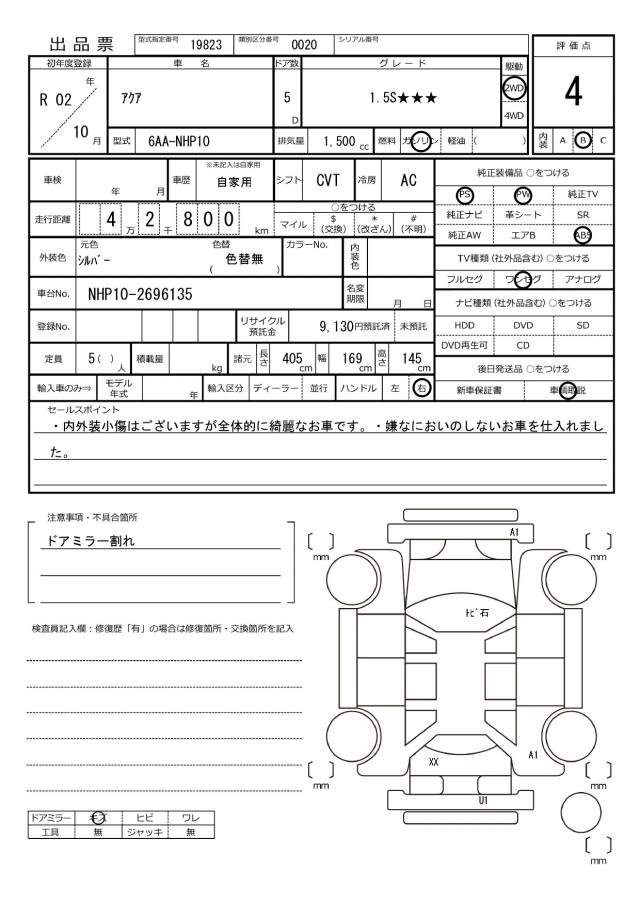 出品票 型式指定番号 19823 類別区分番号 0020 シリアル番号
評価点
4
初年度登録 車名 ドア数 グレード 駆動
R 02 年 10 月
ｱｸｱ 5 D 1.5S★★★
2WD
4WD
型式 6AA-NHP10 排気量 1.500 cc 燃料 ガソリン 軽油 ( )
内装 A B C
車検 年 月 車歴 ※未記入は自家用 自家用 シフト CVT 冷房 AC
走行距離 4 万 2 千 8 0 0 km
○をつける
マイル $ (交換) * (改ざん) # (不明)
外装色 元色 ｼﾙﾊﾞｰ 色替 ( 色替無 ) カラーNo. 内装色
車台No. NHP10-2696135 名変期限 月 日
登録No. リサイクル預託金 9,130円預託済 未預託
定員 5 ( ) 人 積載量 kg 諸元 長さ 405 cm 幅 169 cm 高さ 145 cm
輸入車のみ⇒ モデル年式 年 輸入区分 ディーラー 並行 ハンドル 左 右
純正装備品 ○をつける
PS PW 純正TV
純正ナビ 革シート SR
純正AW エアB ABS
TV種類 (社外品含む) ○をつける
フルセグ ワンセグ アナログ
ナビ種類 (社外品含む) ○をつける
HDD DVD SD
DVD再生可 CD
後日発送品 ○をつける
新車保証書 車輌取説
セールスポイント
・内外装小傷はございますが全体的に綺麗なお車です。・嫌なにおいのしないお車を仕入れまし
た。
注意事項・不具合箇所
ドアミラー割れ
検査員記入欄：修復歴「有」の場合は修復箇所・交換箇所を記入
ドアミラー キズ ヒビ ワレ
工具 無 ジャッキ 無
A1
mm
mm
ﾄﾋﾞ石
XX
A1
mm
mm
U1
mm